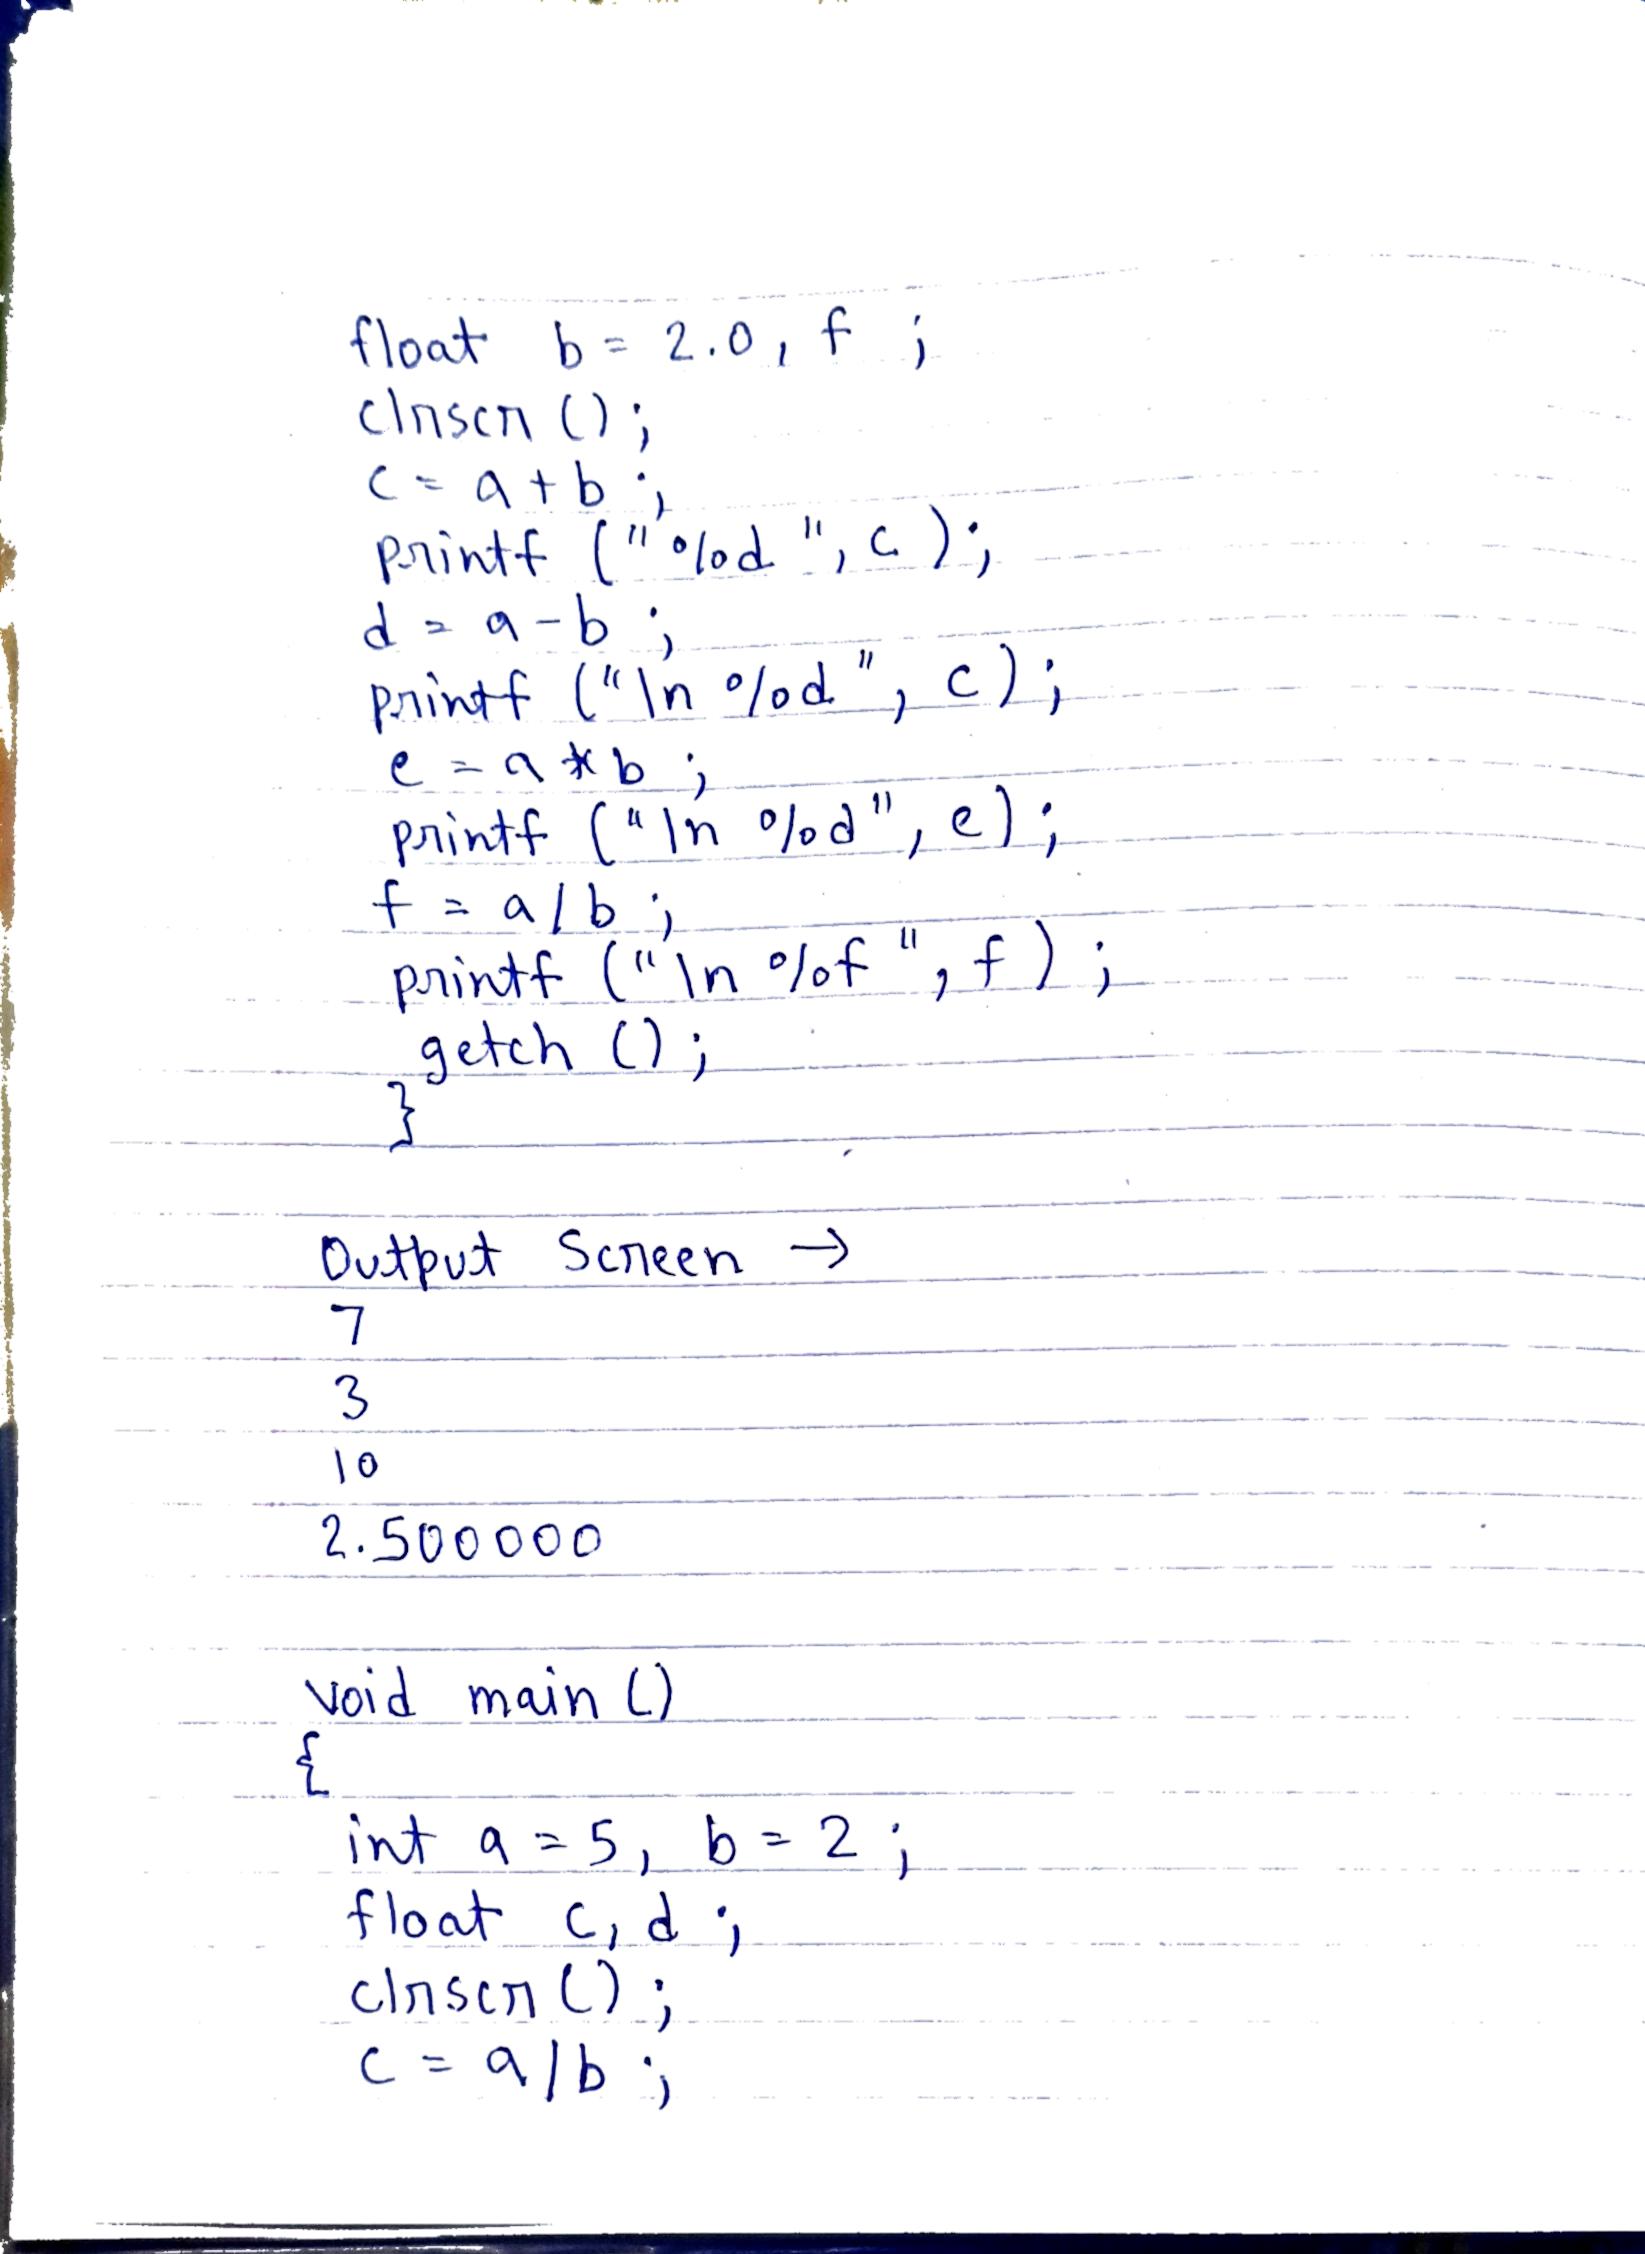 float b = 2.0, f ;
clrscr ();
c = a + b ;
printf ("%d ", c );
d = a - b ;
printf ("\n %d ", c ) ;
e = a * b ;
printf ("\n %d", e) ;
f = a / b ;
printf ("\n %f ", f ) ;
getch () ;
}
Output Screen →
7
3
10
2.500000
void main ()
{
int a = 5, b = 2 ;
float c, d ;
clrscr () ;
c = a / b ;